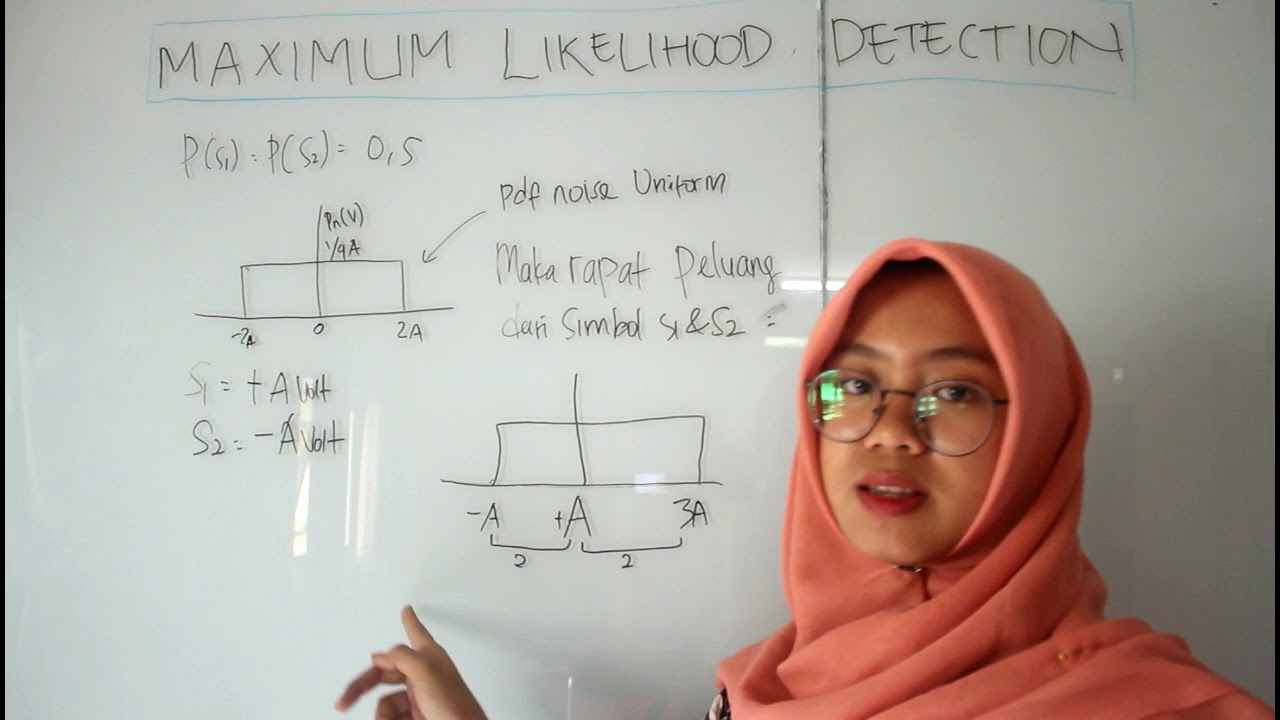 MAXIMUM LIKELIHOOD DETECTION
P(S1) = P(S2) = 0,5
Pdf noise Uniform
Pn(V)
1/4A
-2A 0 2A
Maka rapat Peluang
dari Simbol S1 & S2 =
S1 = + A Volt
S2 = - A Volt
-A +A 3A
2 2